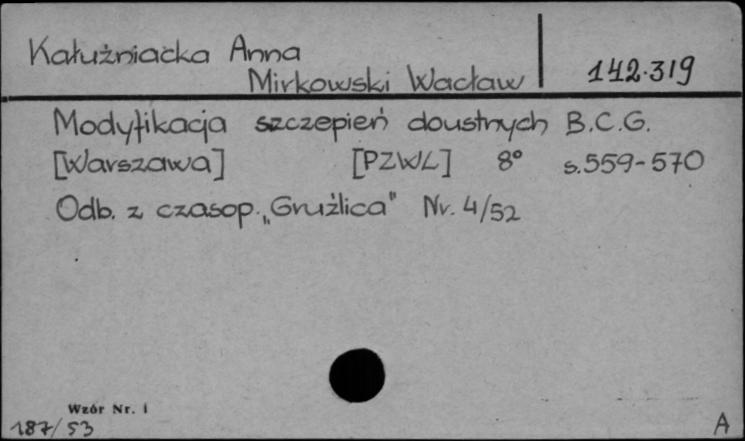 Kałużniacka Anna
Mirkowski Wacław
142.319
Modyfikacja szczepień doustnych B.C.G.
[Warszawa] [PZWL] 8° s.559-570
Odb. z czasop. „Gruźlica" Nr. 4/52
Wzór Nr. 1
187/53
A